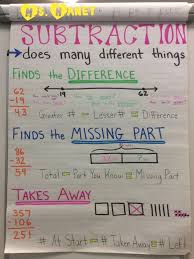 Ms. Naney
SUBTRACTION
does many different things
FINDS the DIFFERENCE
62
- 19
43
19 62
Greater # - Lesser # = Difference
FINDS the MISSING PART
86
- 32
54
86
Total - Part You Know = Missing Part
TAKES AWAY
357
- 106
251
# At Start - # Taken Away = # Left